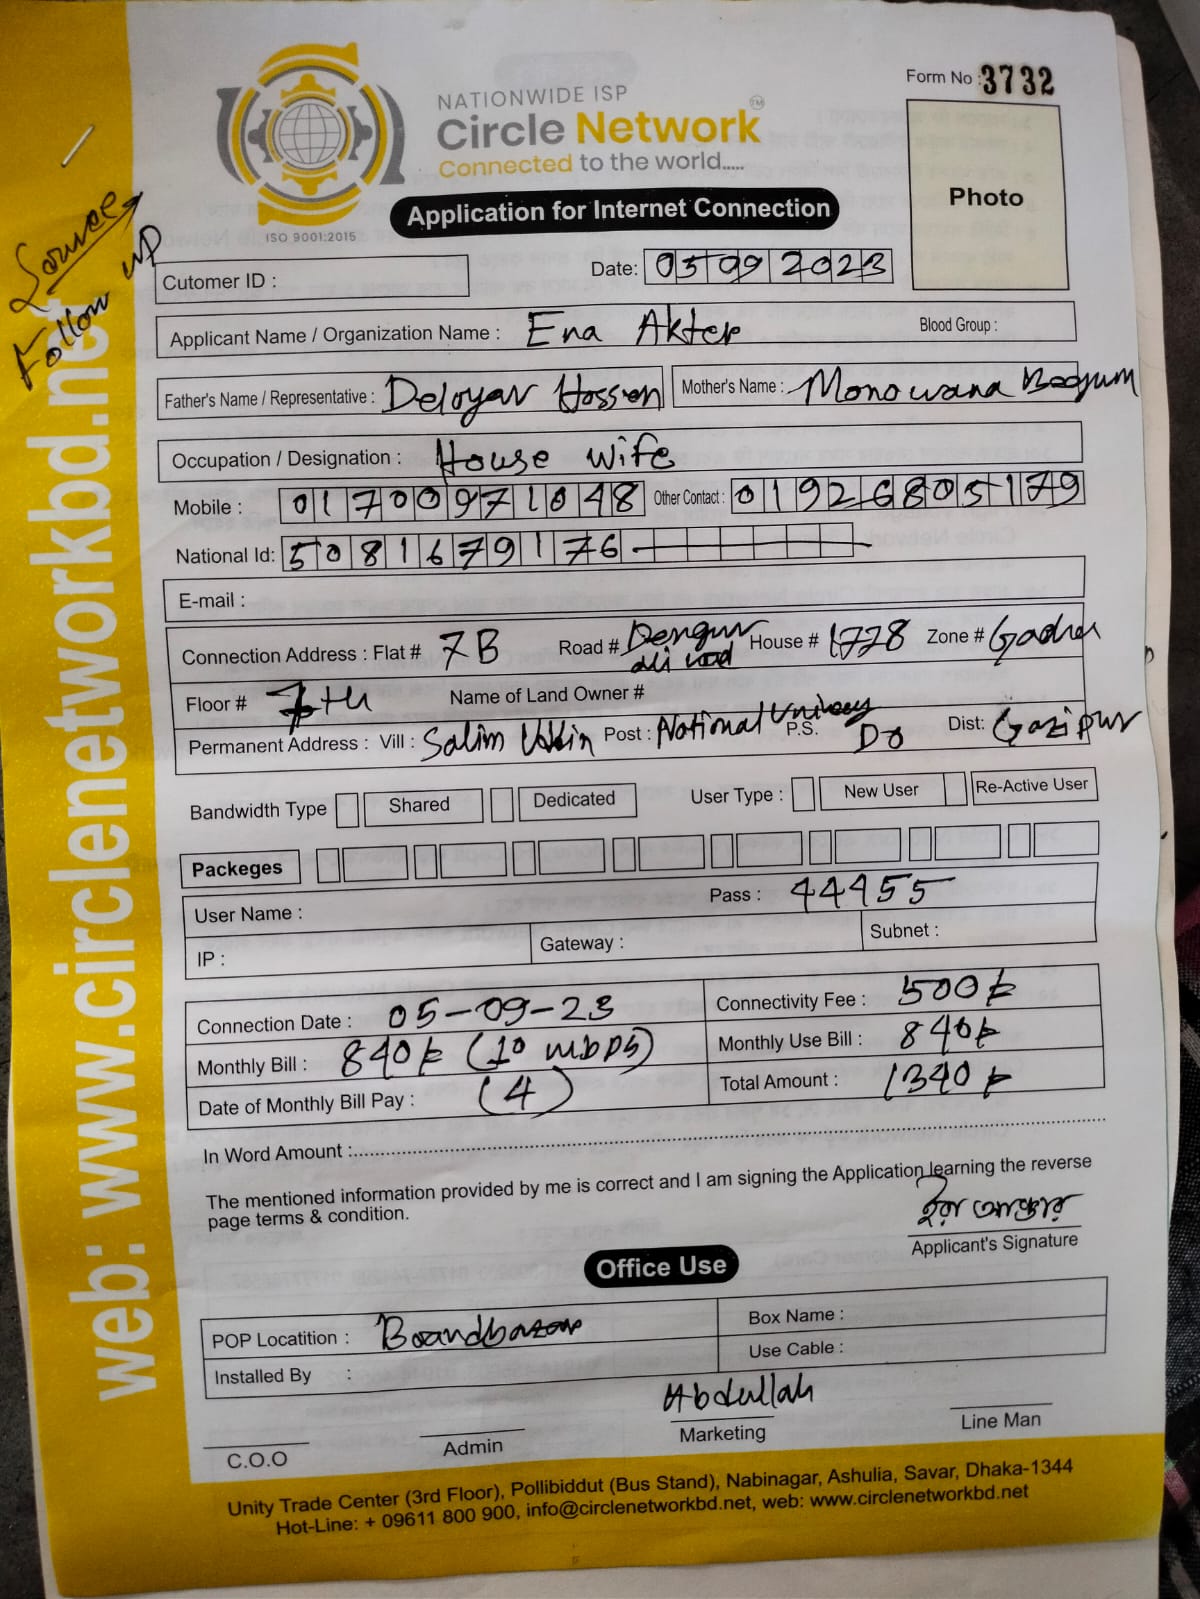 Form No : 3732
NATIONWIDE ISP
Circle Network TM
Connected to the world.....
ISO 9001:2015
Application for Internet Connection
Photo
Follow up
Cutomer ID :
Date: 05 09 2023
Applicant Name / Organization Name : Ena Akter Blood Group :
Father's Name / Representative : Deloyar Hossen Mother's Name : Monowara Begum
Occupation / Designation : House Wife
Mobile : 01700971048 Other Contact : 01926805179
National Id: 5081679176
E-mail :
Connection Address : Flat # 7B Road # ali road House # 1778 Zone # Gacha
Floor # 7th Name of Land Owner #
Permanent Address : Vill : Salim Post : National P.S. Do Dist: Gazipur
Bandwidth Type Shared Dedicated User Type : New User Re-Active User
Packeges
User Name : Pass : 44455
IP : Gateway : Subnet :
Connection Date : 05-09-23 Connectivity Fee : 500৳
Monthly Bill : 840৳ (10 mbps) Monthly Use Bill : 840৳
Date of Monthly Bill Pay : (4) Total Amount : 1340৳
In Word Amount :
The mentioned information provided by me is correct and I am signing the Application learning the reverse
page terms & condition.
ইনা আক্তার
Applicant's Signature
Office Use
POP Locatition : Boardbazar Box Name :
Installed By : Use Cable :
Abdullah
C.O.O Admin Marketing Line Man
Unity Trade Center (3rd Floor), Pollibiddut (Bus Stand), Nabinagar, Ashulia, Savar, Dhaka-1344
Hot-Line: + 09611 800 900, info@circlenetworkbd.net, web: www.circlenetworkbd.net
web: www.circlenetworkbd.net